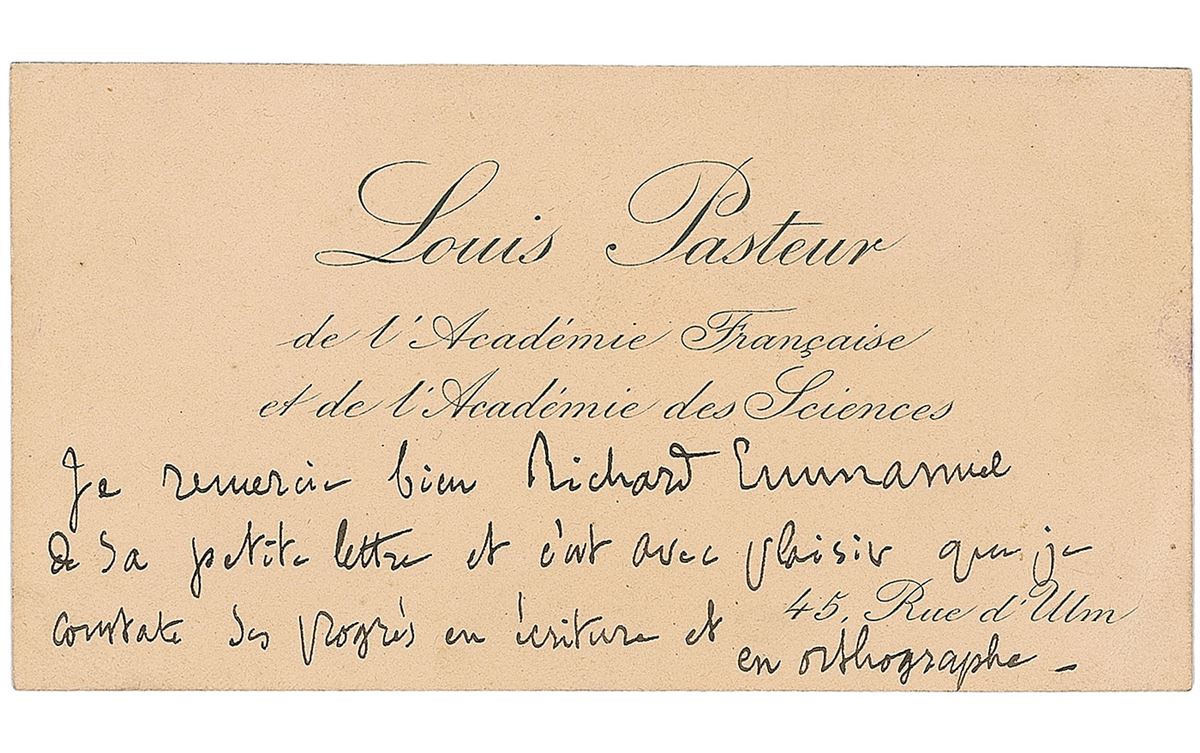 Louis Pasteur
de l'Académie Française
et de l'Académie des Sciences
Je remercie bien Richard Emmanuel
de sa petite lettre et c'est avec plaisir que je
45, Rue d'Ulm
constate ses progrès en écriture et
en orthographe –